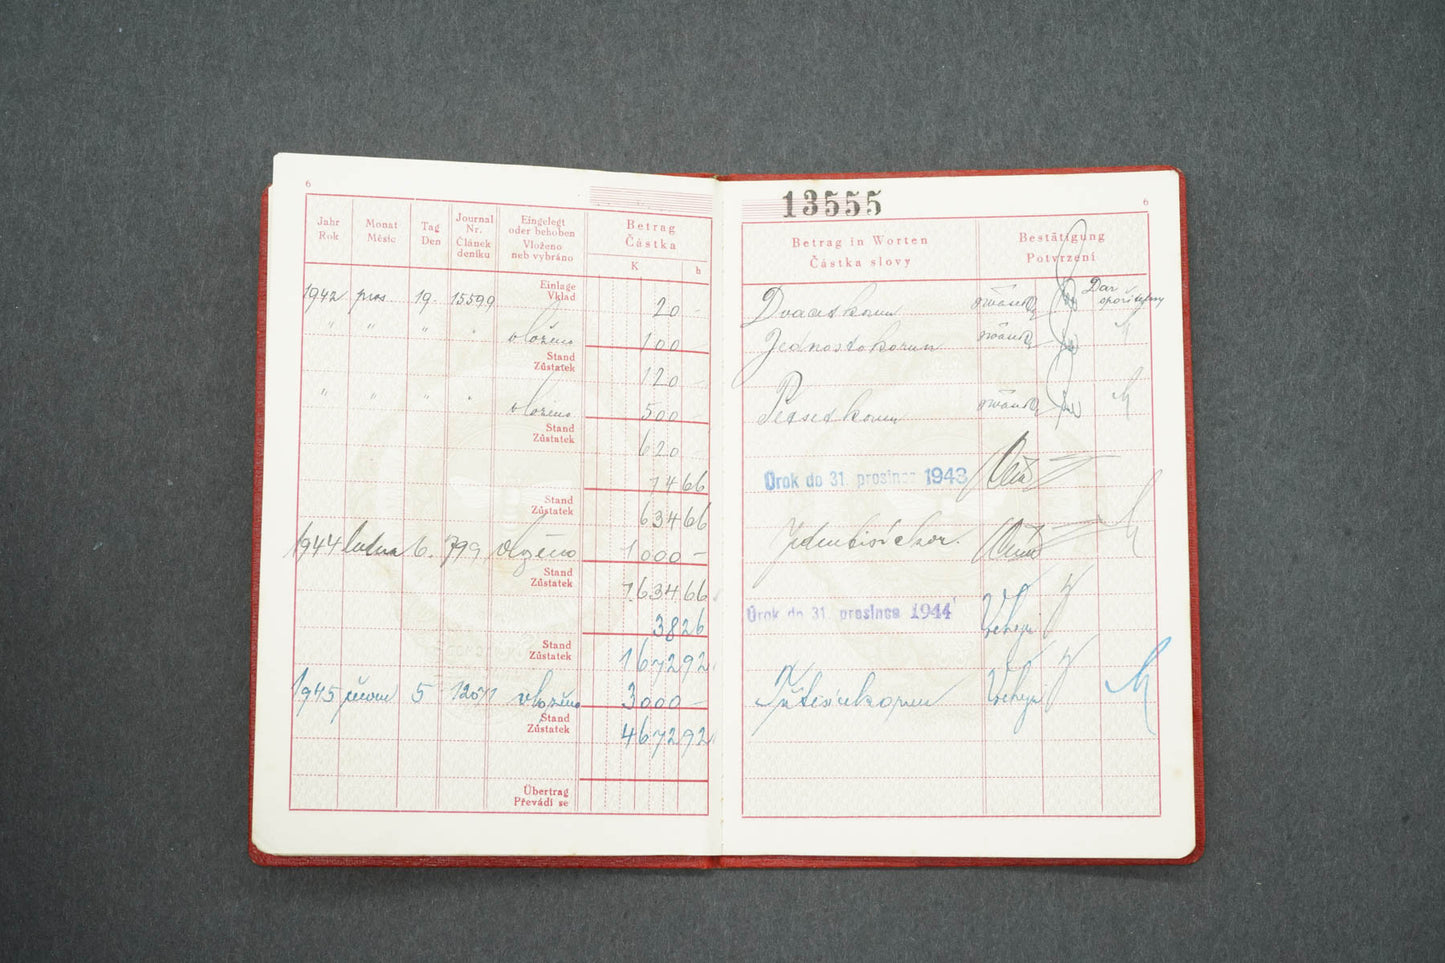 6
Jahr Rok
Monat Měsíc
Tag Den
Journal Nr. Článek deníku
Eingelegt oder behoben Vloženo neb vybráno
Betrag Částka
K h
1942 pros. 19. 15599 Einlage Vklad 20 -
" " " " vloženo 100 -
Stand Zůstatek 120 -
" " " " vloženo 500 -
Stand Zůstatek 620 -
14 66
Stand Zůstatek 634 66
1944 ledna 6. 799 vloženo 1000 -
Stand Zůstatek 1634 66
38 26
Stand Zůstatek 1672 92
1945 5 vloženo 3000 -
Stand Zůstatek 4672 92
Übertrag Převádí se
13555
6
Betrag in Worten Částka slovy
Bestätigung Potvrzení
Dvacet korun Dar spořitelny
Jednosto korun
Pětset korun
Úrok do 31. prosince 1943
Jedentisíc kor.
Úrok do 31. prosince 1944
Třitisíce korun